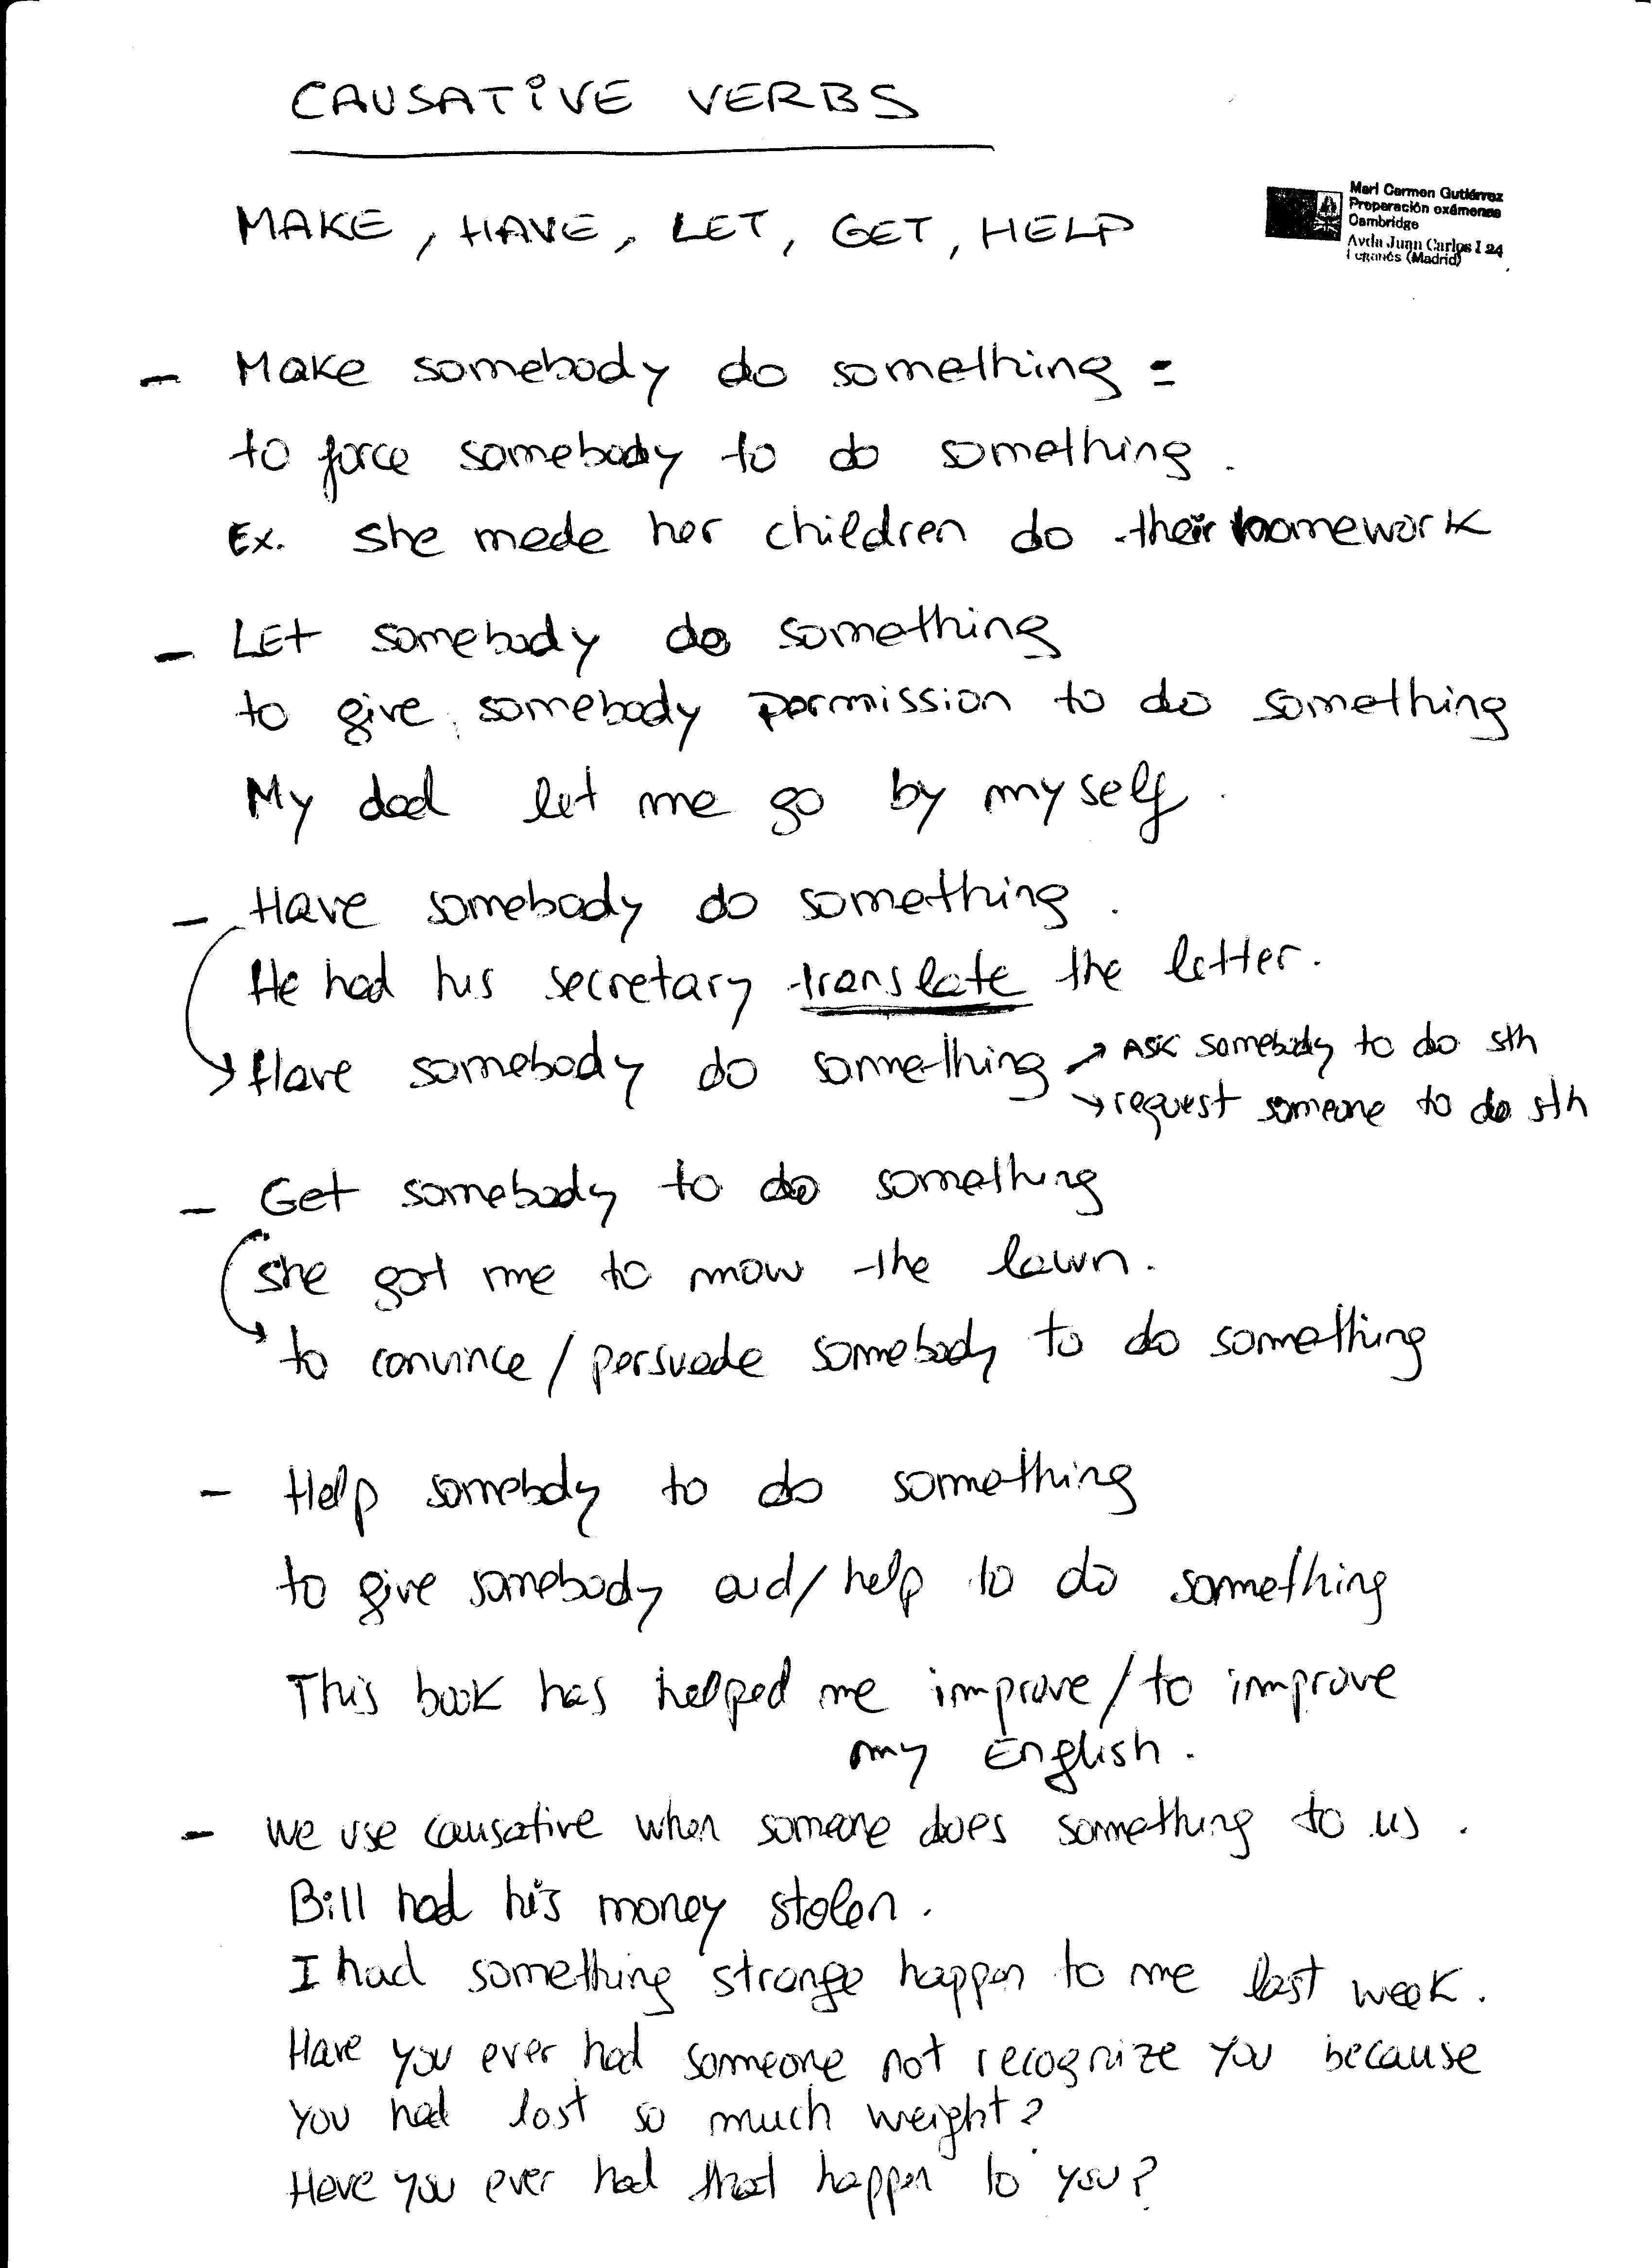 CAUSATIVE VERBS
MAKE, HAVE, LET, GET, HELP
Mari Carmen Gutiérrez
Preparación exámenes
Cambridge
Avda Juan Carlos I 24
Leganés (Madrid)
- Make somebody do something =
to force somebody to do something.
Ex. She made her children do their homework
- LEt somebody do something
to give somebody permission to do something
My dad let me go by myself.
- Have somebody do something.
He had his secretary translate the letter.
→ Have somebody do something ↗ ASK somebody to do sth
↘ request someone to do sth
- Get somebody to do something
she got me to mow the lawn.
→ to convince / persuade somebody to do something
- Help somebody to do something
to give somebody aid/help to do something
This book has helped me improve / to improve
my English.
- We use causative when someone does something to us.
Bill had his money stolen.
I had something strange happen to me last week.
Have you ever had someone not recognize you because
you had lost so much weight?
Have you ever had that happen to you?